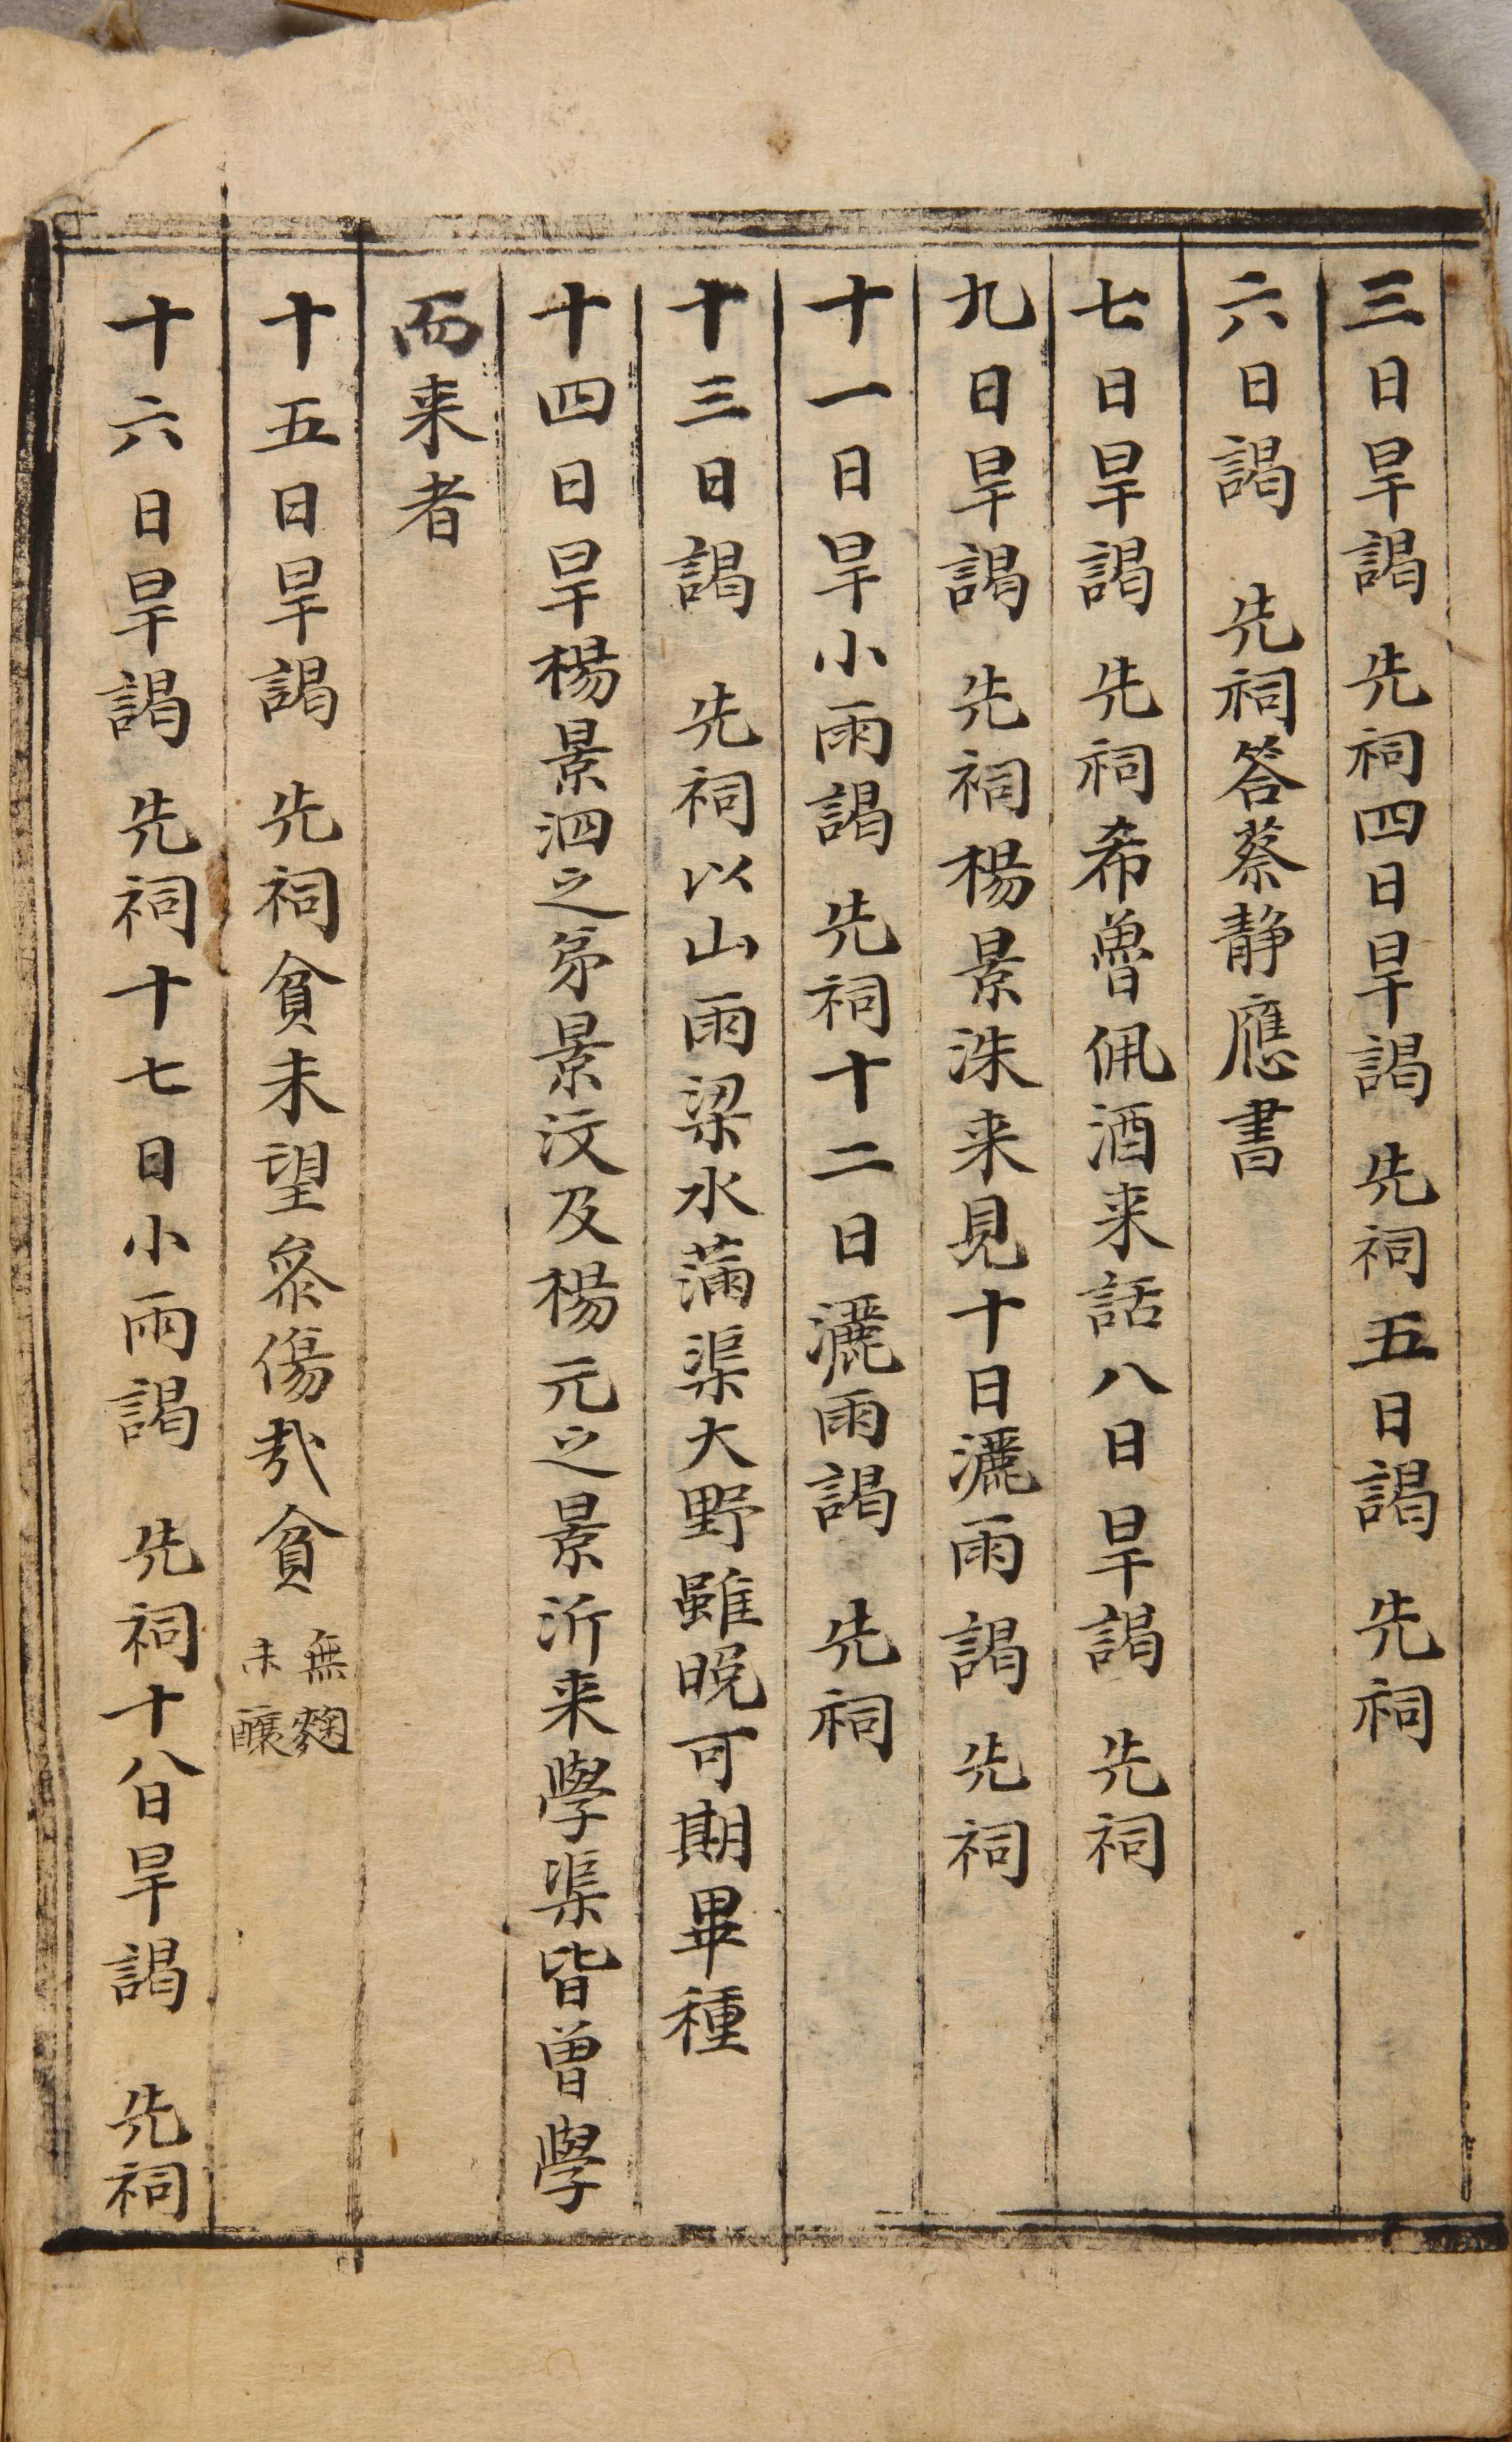 三日旱謁 先祠四日旱謁 先祠五日謁 先祠
六日謁 先祠答蔡静應書
七日旱謁 先祠希曽佩酒来話八日旱謁 先祠
九日旱謁 先祠楊景洙来見十日灑雨謁 先祠
十一日旱小雨謁 先祠十二日灑雨謁 先祠
十三日謁 先祠以山雨梁水滿渠大野雖晩可期畢種
十四日旱楊景泗之弟景汶及楊元之景沂来學渠皆曽學
而来者
十五日旱謁 先祠貧未望叅傷㢤貧 無麴未釀
十六日旱謁 先祠十七日小雨謁 先祠十八日旱謁 先祠